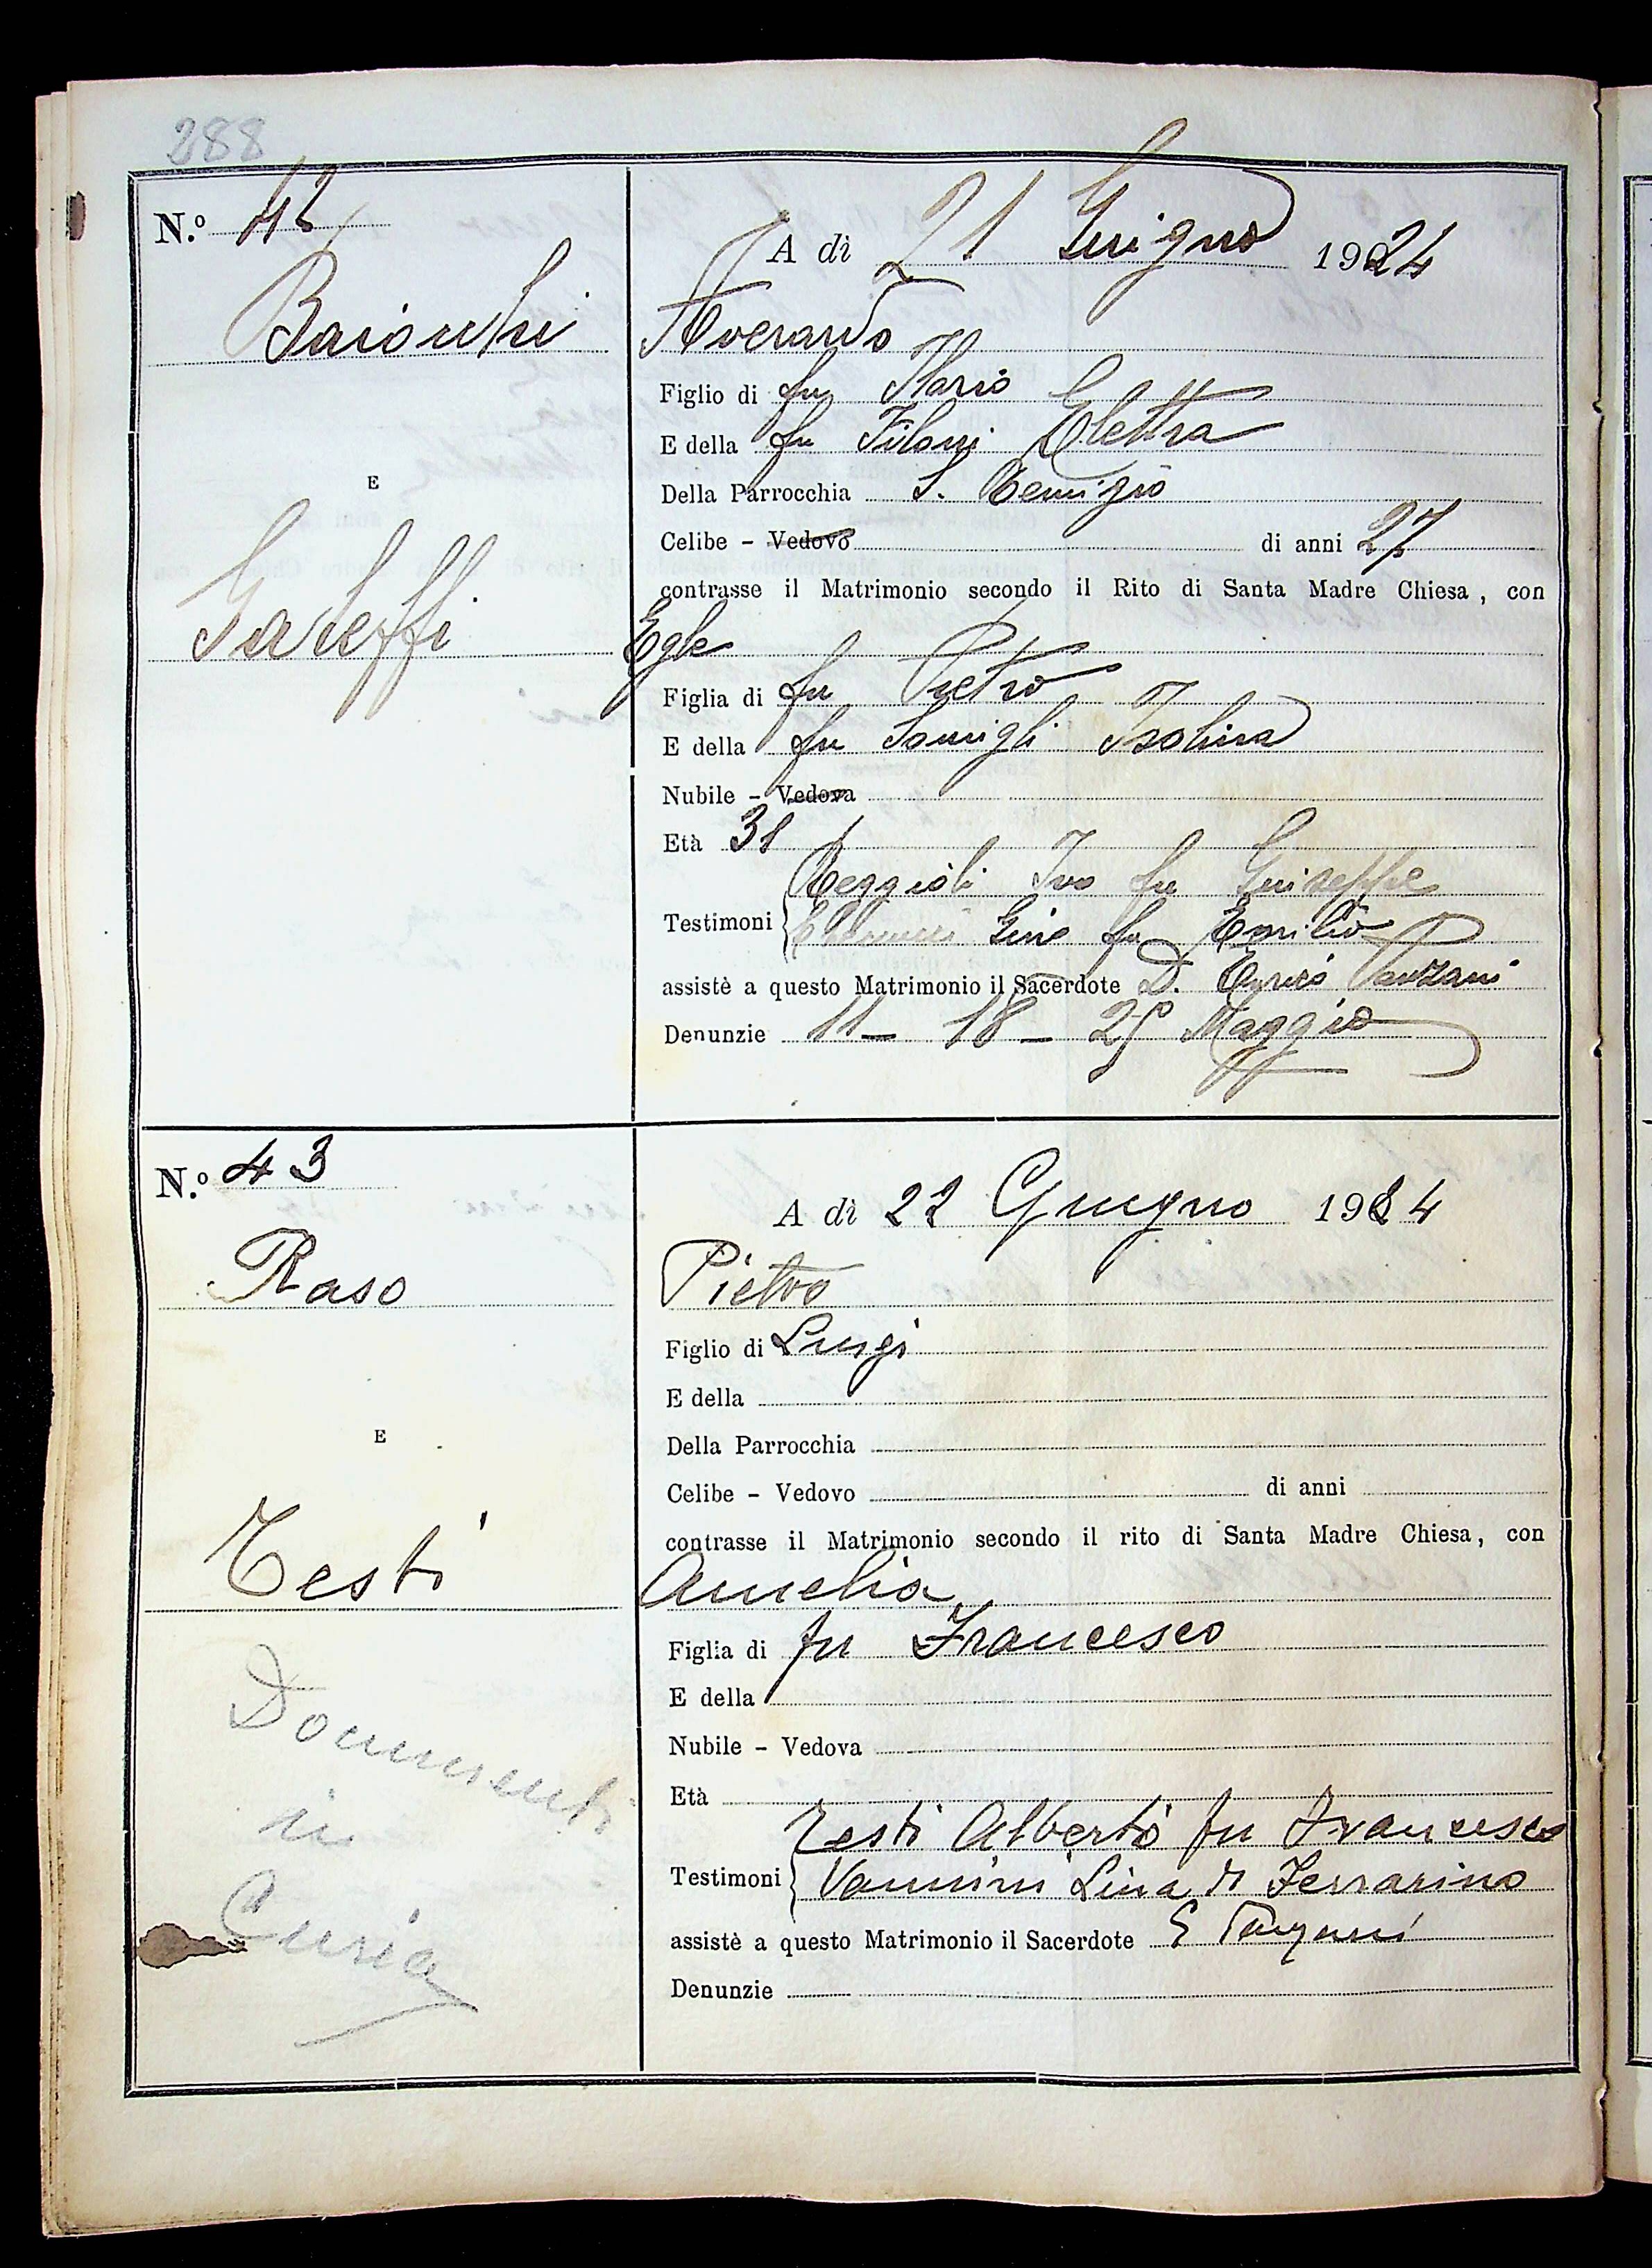 288
N.º 42
A dì 21 Giugno 1924
Baiocchi
Averardo
Figlio di fu Mario
E della fu Filoni Elettra
E
Della Parrocchia S. Remigio
Celibe - Vedovo di anni 27
contrasse il Matrimonio secondo il Rito di Santa Madre Chiesa, con
Gareffi
Egle
Figlia di fu Pietro
E della fu Somigli Isolina
Nubile - Vedova
Età 31
Reggioli Ivo fu Giuseppe
Testimoni
Gino fu Emilio
assistè a questo Matrimonio il Sacerdote D. Enrico Tanzani
Denunzie 11 - 18 - 25 Maggio
N.º 43
A dì 22 Giugno 1924
Raso
Pietro
Figlio di Luigi
E della
E
Della Parrocchia
Celibe - Vedovo di anni
contrasse il Matrimonio secondo il rito di Santa Madre Chiesa, con
Testi
Amelia
Figlia di fu Francesco
E della
Nubile - Vedova
Età
Documenti
in
Curia
Testi Alberto fu Francesco
Testimoni Vannini Lina di Ferrarino
assistè a questo Matrimonio il Sacerdote E Tanzani
Denunzie